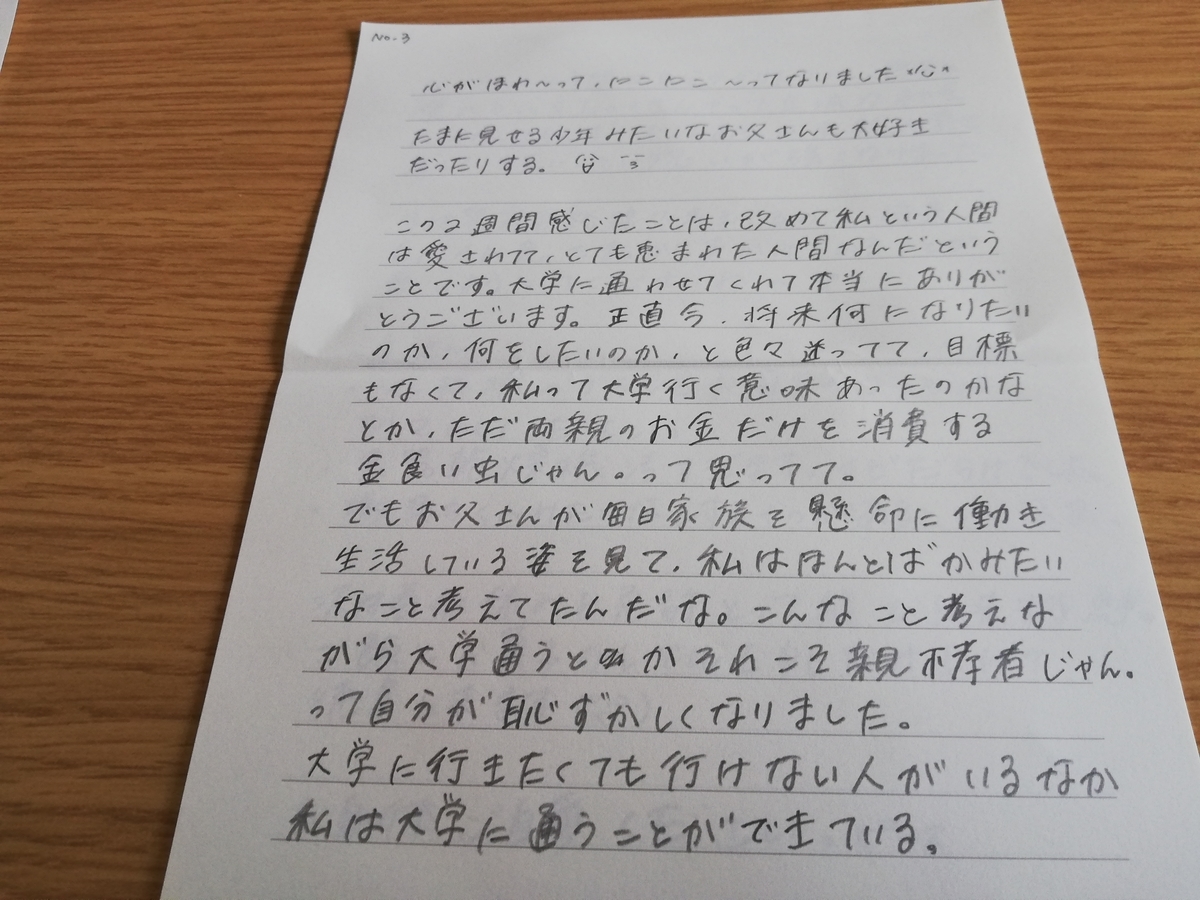 No.3
心がほわ〜って、ロニロニ〜ってなりました
たまに見せる少年みたいなお父さんも大好き
だったりする。
この2週間感じたことは、改めて私という人間
は愛されてて、とても恵まれた人間なんだという
ことです。大学に通わせてくれて本当にありが
とうございます。正直今、将来何になりたい
のか、何をしたいのか、と色々迷ってて、目標
もなくて、私って大学行く意味あったのかな
とか、ただ両親のお金だけを消費する
金食い虫じゃん。って思ってて。
でもお父さんが毎日家族を懸命に働き
生活している姿を見て、私はほんとばかみたい
なこと考えてたんだな。こんなこと考えな
がら大学通うとかそれこそ親不孝者じゃん。
って自分が恥ずかしくなりました。
大学に行きたくても行けない人がいるなか
私は大学に通うことができている。